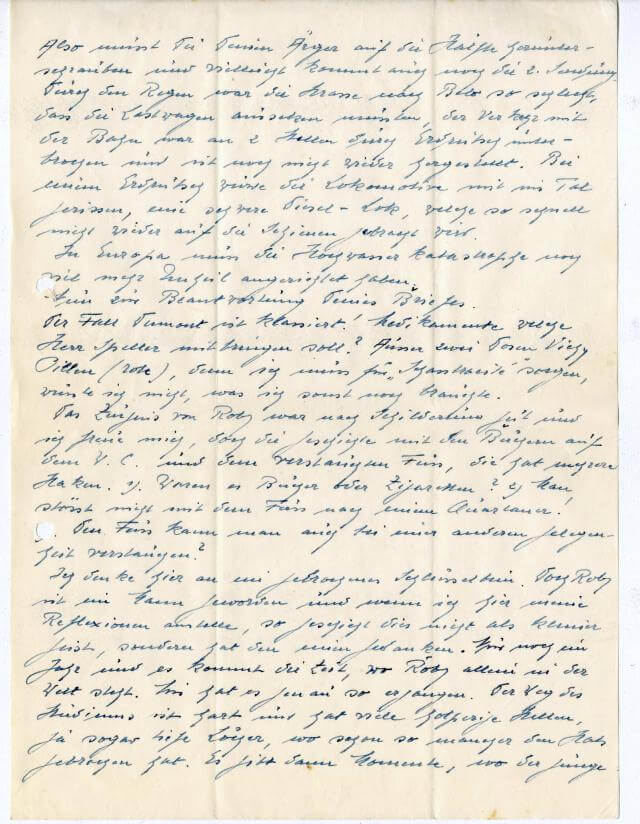 Also musst Du Deinen Ärger auf die Hälfte herunter-
schrauben und vielleicht kommt auch noch die 2. Sendung
Durch den Regen war die Strasse nach Belo so schlecht,
dass die Lastwagen aussetzen mussten, der Verkehr mit
der Bahn war an 2 Stellen durch Erdrutsch unter-
brochen und ist noch nicht wieder hergestellt. Bei
einem Erdrutsch wurde die Lokomotive mit ins Tal
gerissen, eine schwere Diesel-Lok, welche so schnell
nicht wieder auf die Schienen gebracht wird.
In Europa muss die Hochwasser katastrophe noch
viel mehr Unheil angerichtet haben.
Nun zur Beantwortung Deines Briefes.
Der Fall Dumont ist klassiert! Medikamente welche
Herr Speller mitbringen soll? Ausser zwei Dosen Vichy
Pillen (rote), denn ich muss für sorgen,
wüsste ich nicht, was ich sonst noch bräuchte.
Das Zeugnis von Roby war nach Schilderung gut und
ich freue mich, doch die Geschichte mit den Büchern auf
dem V. C. und dem verstauchten Fuss, die hat mehrere
Haken. 1) Waren es Bücher oder Zigaretten? 2) Man
stösst nicht mit dem Fuss nach einem Quartaner!
. Den Fuss kann man auch bei einer anderen Gelegen-
heit verstauchen?
Ich denke hier an ein gebrochenes Schlüsselbein. Doch Roby
ist ein Mann geworden und wenn ich hier meine
Reflexionen anstelle, so geschieht dies nicht als kleiner
Geist, sondern hat den einen Gedanken. Nur noch ein
Jahr und es kommt die Zeit, wo Roby allein in der
Welt steht. Mir hat es genau so ergangen. Der Weg des
Studiums ist hart und hat viele holperige Stellen,
ja sogar tiefe Löcher, wo schon so mancher den Hals
gebrochen hat. Es gibt dann Momente, wo der junge